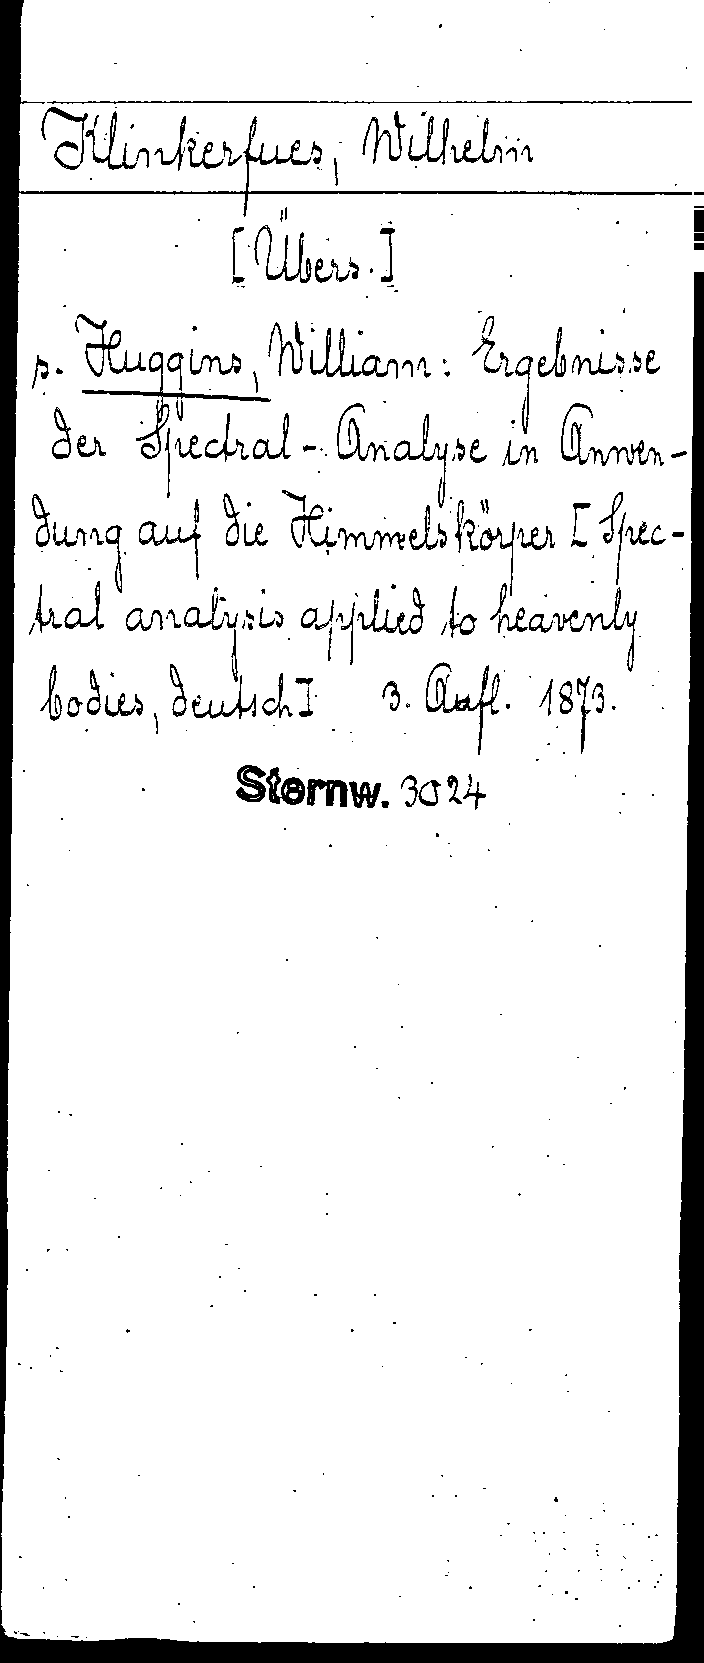 Klinkerfues, Wilhelm
[Übers.]
s. Huggins, William: Ergebnisse
der Spectral-Analyse in Anwen-
dung auf die Himmelskörper [Spec-
tral analysis applied to heavenly
bodies, deutsch] 3. Aufl. 1873.
Sternw. 3024